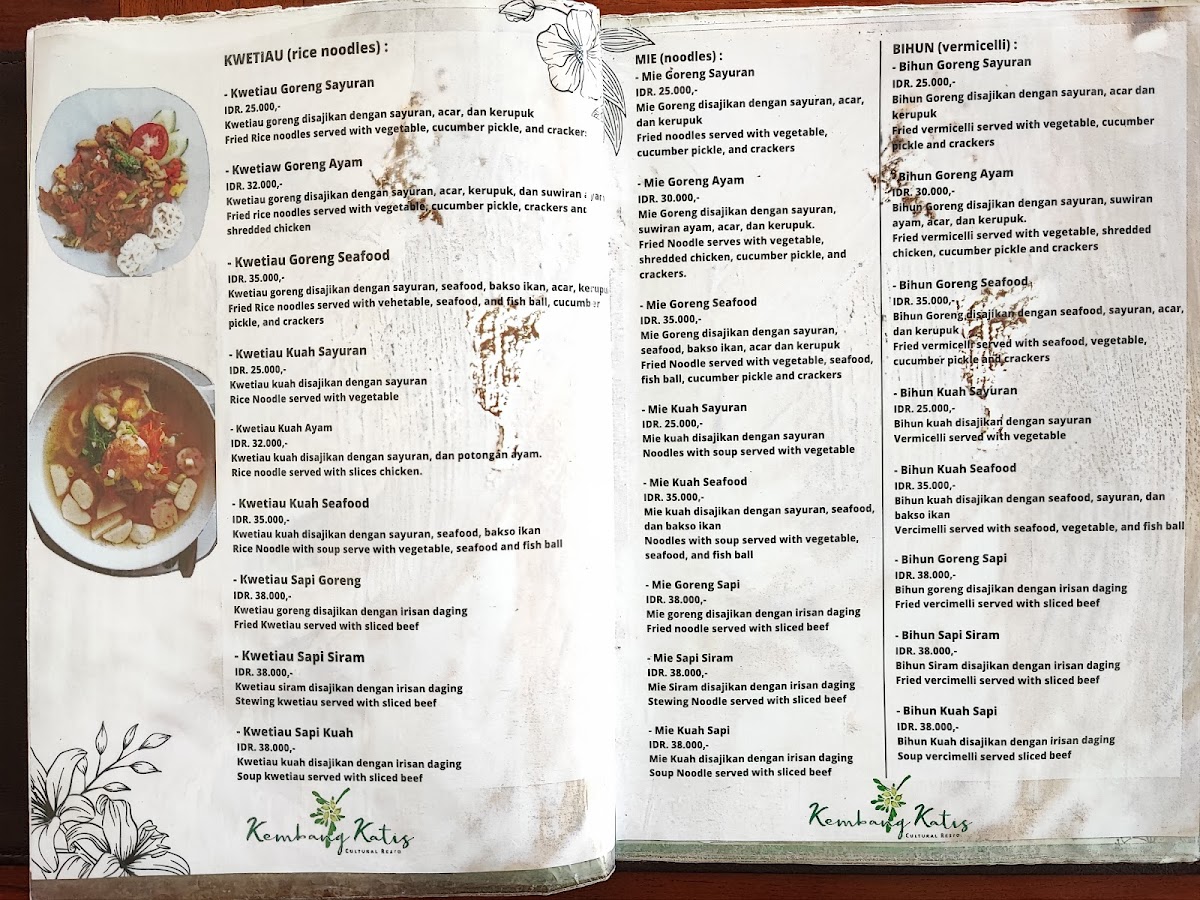 KWETIAU (rice noodles) :
- Kwetiau Goreng Sayuran
IDR. 25.000,-
Kwetiau goreng disajikan dengan sayuran, acar, dan kerupuk
Fried Rice noodles served with vegetable, cucumber pickle, and crackers
- Kwetiaw Goreng Ayam
IDR. 32.000,-
Kwetiau goreng disajikan dengan sayuran, acar, kerupuk, dan suwiran ayam
Fried rice noodles served with vegetable, cucumber pickle, crackers and
shredded chicken
- Kwetiau Goreng Seafood
IDR. 35.000,-
Kwetiau goreng disajikan dengan sayuran, seafood, bakso ikan, acar, kerupu
Fried Rice noodles served with vehetable, seafood, and fish ball, cucumber
pickle, and crackers
- Kwetiau Kuah Sayuran
IDR. 25.000,-
Kwetiau kuah disajikan dengan sayuran
Rice Noodle served with vegetable
- Kwetiau Kuah Ayam
IDR. 32.000,-
Kwetiau kuah disajikan dengan sayuran, dan potongan ayam.
Rice noodle served with slices chicken.
- Kwetiau Kuah Seafood
IDR. 35.000,-
Kwetiau kuah disajikan dengan sayuran, seafood, bakso ikan
Rice Noodle with soup serve with vegetable, seafood and fish ball
- Kwetiau Sapi Goreng
IDR. 38.000,-
Kwetiau goreng disajikan dengan irisan daging
Fried Kwetiau served with sliced beef
- Kwetiau Sapi Siram
IDR. 38.000,-
Kwetiau siram disajikan dengan irisan daging
Stewing kwetiau served with sliced beef
- Kwetiau Sapi Kuah
IDR. 38.000,-
Kwetiau kuah disajikan dengan irisan daging
Soup kwetiau served with sliced beef
Kembang Katis
CULTURAL RESTO
MIE (noodles) :
- Mie Goreng Sayuran
IDR. 25.000,-
Mie Goreng disajikan dengan sayuran, acar,
dan kerupuk
Fried noodles served with vegetable,
cucumber pickle, and crackers
- Mie Goreng Ayam
IDR. 30.000,-
Mie Goreng disajikan dengan sayuran,
suwiran ayam, acar, dan kerupuk.
Fried Noodle serves with vegetable,
shredded chicken, cucumber pickle, and
crackers.
- Mie Goreng Seafood
IDR. 35.000,-
Mie Goreng disajikan dengan sayuran,
seafood, bakso ikan, acar dan kerupuk
Fried Noodle served with vegetable, seafood,
fish ball, cucumber pickle and crackers
- Mie Kuah Sayuran
IDR. 25.000,-
Mie kuah disajikan dengan sayuran
Noodles with soup served with vegetable
- Mie Kuah Seafood
IDR. 35.000,-
Mie kuah disajikan dengan sayuran, seafood,
dan bakso ikan
Noodles with soup served with vegetable,
seafood, and fish ball
- Mie Goreng Sapi
IDR. 38.000,-
Mie goreng disajikan dengan irisan daging
Fried noodle served with sliced beef
- Mie Sapi Siram
IDR. 38.000,-
Mie Siram disajikan dengan irisan daging
Stewing Noodle served with sliced beef
- Mie Kuah Sapi
IDR. 38.000,-
Mie Kuah disajikan dengan irisan daging
Soup Noodle served with sliced beef
BIHUN (vermicelli) :
- Bihun Goreng Sayuran
IDR. 25.000,-
Bihun Goreng disajikan dengan sayuran, acar dan
kerupuk
Fried vermicelli served with vegetable, cucumber
pickle and crackers
- Bihun Goreng Ayam
IDR. 30.000,-
Bihun Goreng disajikan dengan sayuran, suwiran
ayam, acar, dan kerupuk.
Fried vermicelli served with vegetable, shredded
chicken, cucumber pickle and crackers
- Bihun Goreng Seafood
IDR. 35.000,-
Bihun Goreng disajikan dengan seafood, sayuran, acar,
dan kerupuk
Fried vermicelli served with seafood, vegetable,
cucumber pickle and crackers
- Bihun Kuah Sayuran
IDR. 25.000,-
Bihun kuah disajikan dengan sayuran
Vermicelli served with vegetable
- Bihun Kuah Seafood
IDR. 35.000,-
Bihun kuah disajikan dengan seafood, sayuran, dan
bakso ikan
Vercimelli served with seafood, vegetable, and fish ball
- Bihun Goreng Sapi
IDR. 38.000,-
Bihun goreng disajikan dengan irisan daging
Fried vercimelli served with sliced beef
- Bihun Sapi Siram
IDR. 38.000,-
Bihun Siram disajikan dengan irisan daging
Fried vercimelli served with sliced beef
- Bihun Kuah Sapi
IDR. 38.000,-
Bihun Kuah disajikan dengan irisan daging
Soup vercimelli served sliced beef
Kembang Katis
CULTURAL RESTO